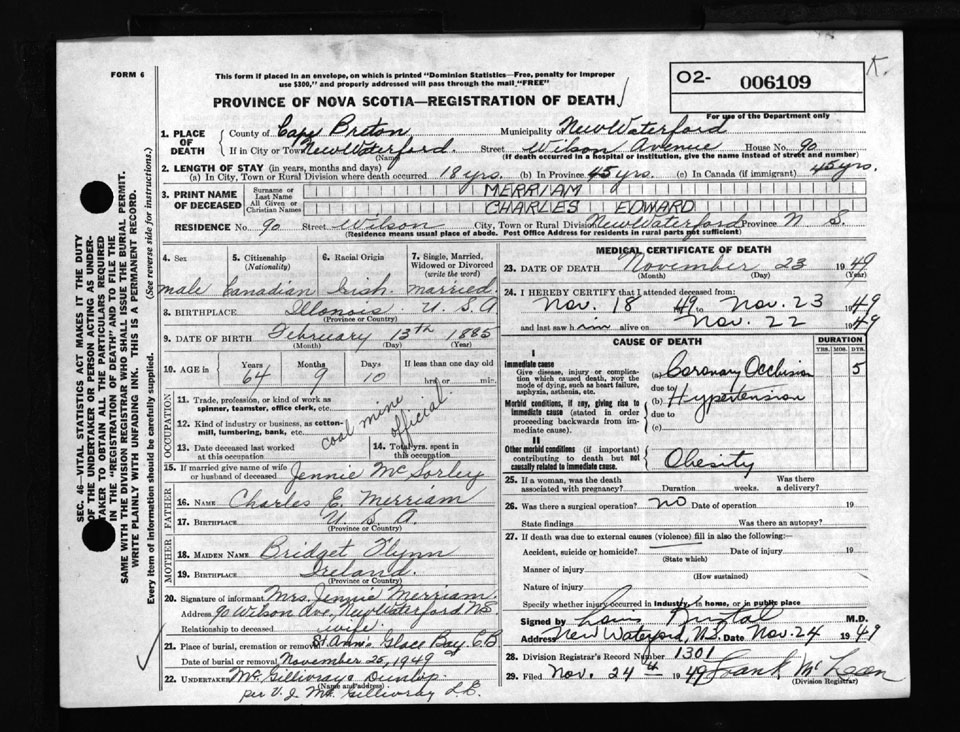 FORM 6
This form if placed in an envelope, on which is printed "Dominion Statistics—Free, penalty for improper
use $300," and properly addressed will pass through the mail "FREE"
O2- 006109
K.
PROVINCE OF NOVA SCOTIA—REGISTRATION OF DEATH
For use of the Department only
1. PLACE OF DEATH
County of Cape Breton Municipality of New Waterford
If in City or Town New Waterford Street Wilson Avenue House No. 90
(Name) (If death occurred in a hospital or institution, give the name instead of street and number)
2. LENGTH OF STAY (in years, months and days)
(a) In City, Town or Rural Division where death occurred 18 yrs. (b) In Province 45 yrs. (c) In Canada (if immigrant) 45 yrs.
3. PRINT NAME OF DECEASED
Surname or Last Name MERRIAM
All Given or Christian Names CHARLES EDWARD
RESIDENCE No. 90 Street Wilson City, Town or Rural Division New Waterford Province N S.
(Residence means usual place of abode. Post Office Address for residents in rural parts not sufficient)
4. Sex 5. Citizenship (Nationality) 6. Racial Origin 7. Single, Married, Widowed or Divorced (write the word)
male Canadian Irish married.
8. BIRTHPLACE Illonois U.S.A
(Province or Country)
9. DATE OF BIRTH February 13th 1885
(Month) (Day) (Year)
10. AGE in Years Months Days If less than one day old
64 9 10 hrs. or min.
OCCUPATION
11. Trade, profession, or kind of work as
spinner, teamster, office clerk, etc.
12. Kind of industry or business, as cotton-
mill, lumbering, bank, etc.
coal mine official.
13. Date deceased last worked
at this occupation
14. Total yrs. spent in
this occupation
15. If married give name of wife
or husband of deceased Jennie McSorley
FATHER
16. NAME Charles E. Merriam
17. BIRTHPLACE U.S.A.
(Province or Country)
MOTHER
18. MAIDEN NAME Bridget Flynn
19. BIRTHPLACE Ireland.
(Province or Country)
20. Signature of informant Mrs. Jennie Merriam
Address 90 Wilson Ave, New Waterford, N.S
Relationship to deceased wife.
21. Place of burial, cremation or removal St. Ann's Glace Bay, C.B
Date of burial or removal November 26, 1949
22. UNDERTAKER McGillivrays Dunlop
(Name and address)
per V. J. McGillivray
MEDICAL CERTIFICATE OF DEATH
23. DATE OF DEATH November 23 1949
(Month) (Day) (Year)
24. I HEREBY CERTIFY that I attended deceased from:
Nov. 18 49 to Nov. 23 1949
and last saw him alive on Nov. 22 1949
CAUSE OF DEATH
DURATION
YRS. MOS. DYS.
I
Immediate cause
Give disease, injury or complica-
tion which caused death, NOT the
mode of dying, such as heart failure,
asphyxia, asthenia, etc.
(a) Coronary Occlusion 5
due to
Morbid conditions, if any, giving rise to
immediate cause (stated in order
proceeding backwards from im-
mediate cause).
(b) Hypertension
due to
(c)
II
Other morbid conditions (if important)
contributing to death but not
causally related to immediate cause.
Obesity
25. If a woman, was the death
associated with pregnancy? Duration weeks. Was there
a delivery?
26. Was there a surgical operation? no Date of operation 19
State findings Was there an autopsy?
27. If death was due to external causes (violence) fill in also the following:
Accident, suicide or homicide? Date of injury 19
(State which)
Manner of injury
(How sustained)
Nature of injury
Specify whether injury occurs in industry, in home, or in public place
Signed by M.D.
Address New Waterford, N.S. Date Nov. 24 1949
28. Division Registrar's Record Number 1301
29. Filed Nov. 24th 1949 Frank McLean
(Division Registrar)
SEC. 46 VITAL STATISTICS ACT MAKES IT THE DUTY
OF THE UNDERTAKER OR PERSON ACTING AS UNDER-
TAKER TO OBTAIN ALL THE PARTICULARS REQUIRED
IN THE "REGISTRATION OF DEATH" AND TO FILE THE
SAME WITH THE DIVISION REGISTRAR WHO SHALL ISSUE THE BURIAL PERMIT.
WRITE PLAINLY WITH UNFADING INK. THIS IS A PERMANENT RECORD.
Every item of information should be carefully supplied. (See reverse side for instructions.)